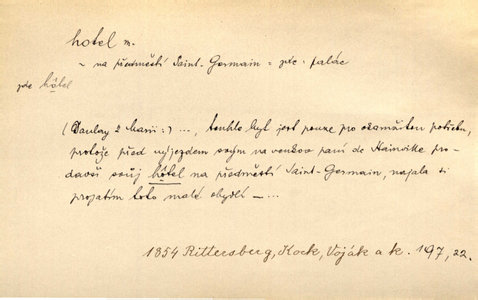 hotel m.
~ na předměstí Saint-Germain = zde: palác
zde hôtel
(Daulay z Marii:) ..., tenhle byt jest pouze pro okamžitou potřebu,
protože před vyjezdem svým na venkov paní de Hainville pro-
davši svůj hôtel na předměstí Saint-Germain, najala si
projatím toto malé obydlí — ...
1854 Rittersberg, Kock, Voják a k. 197, 22.